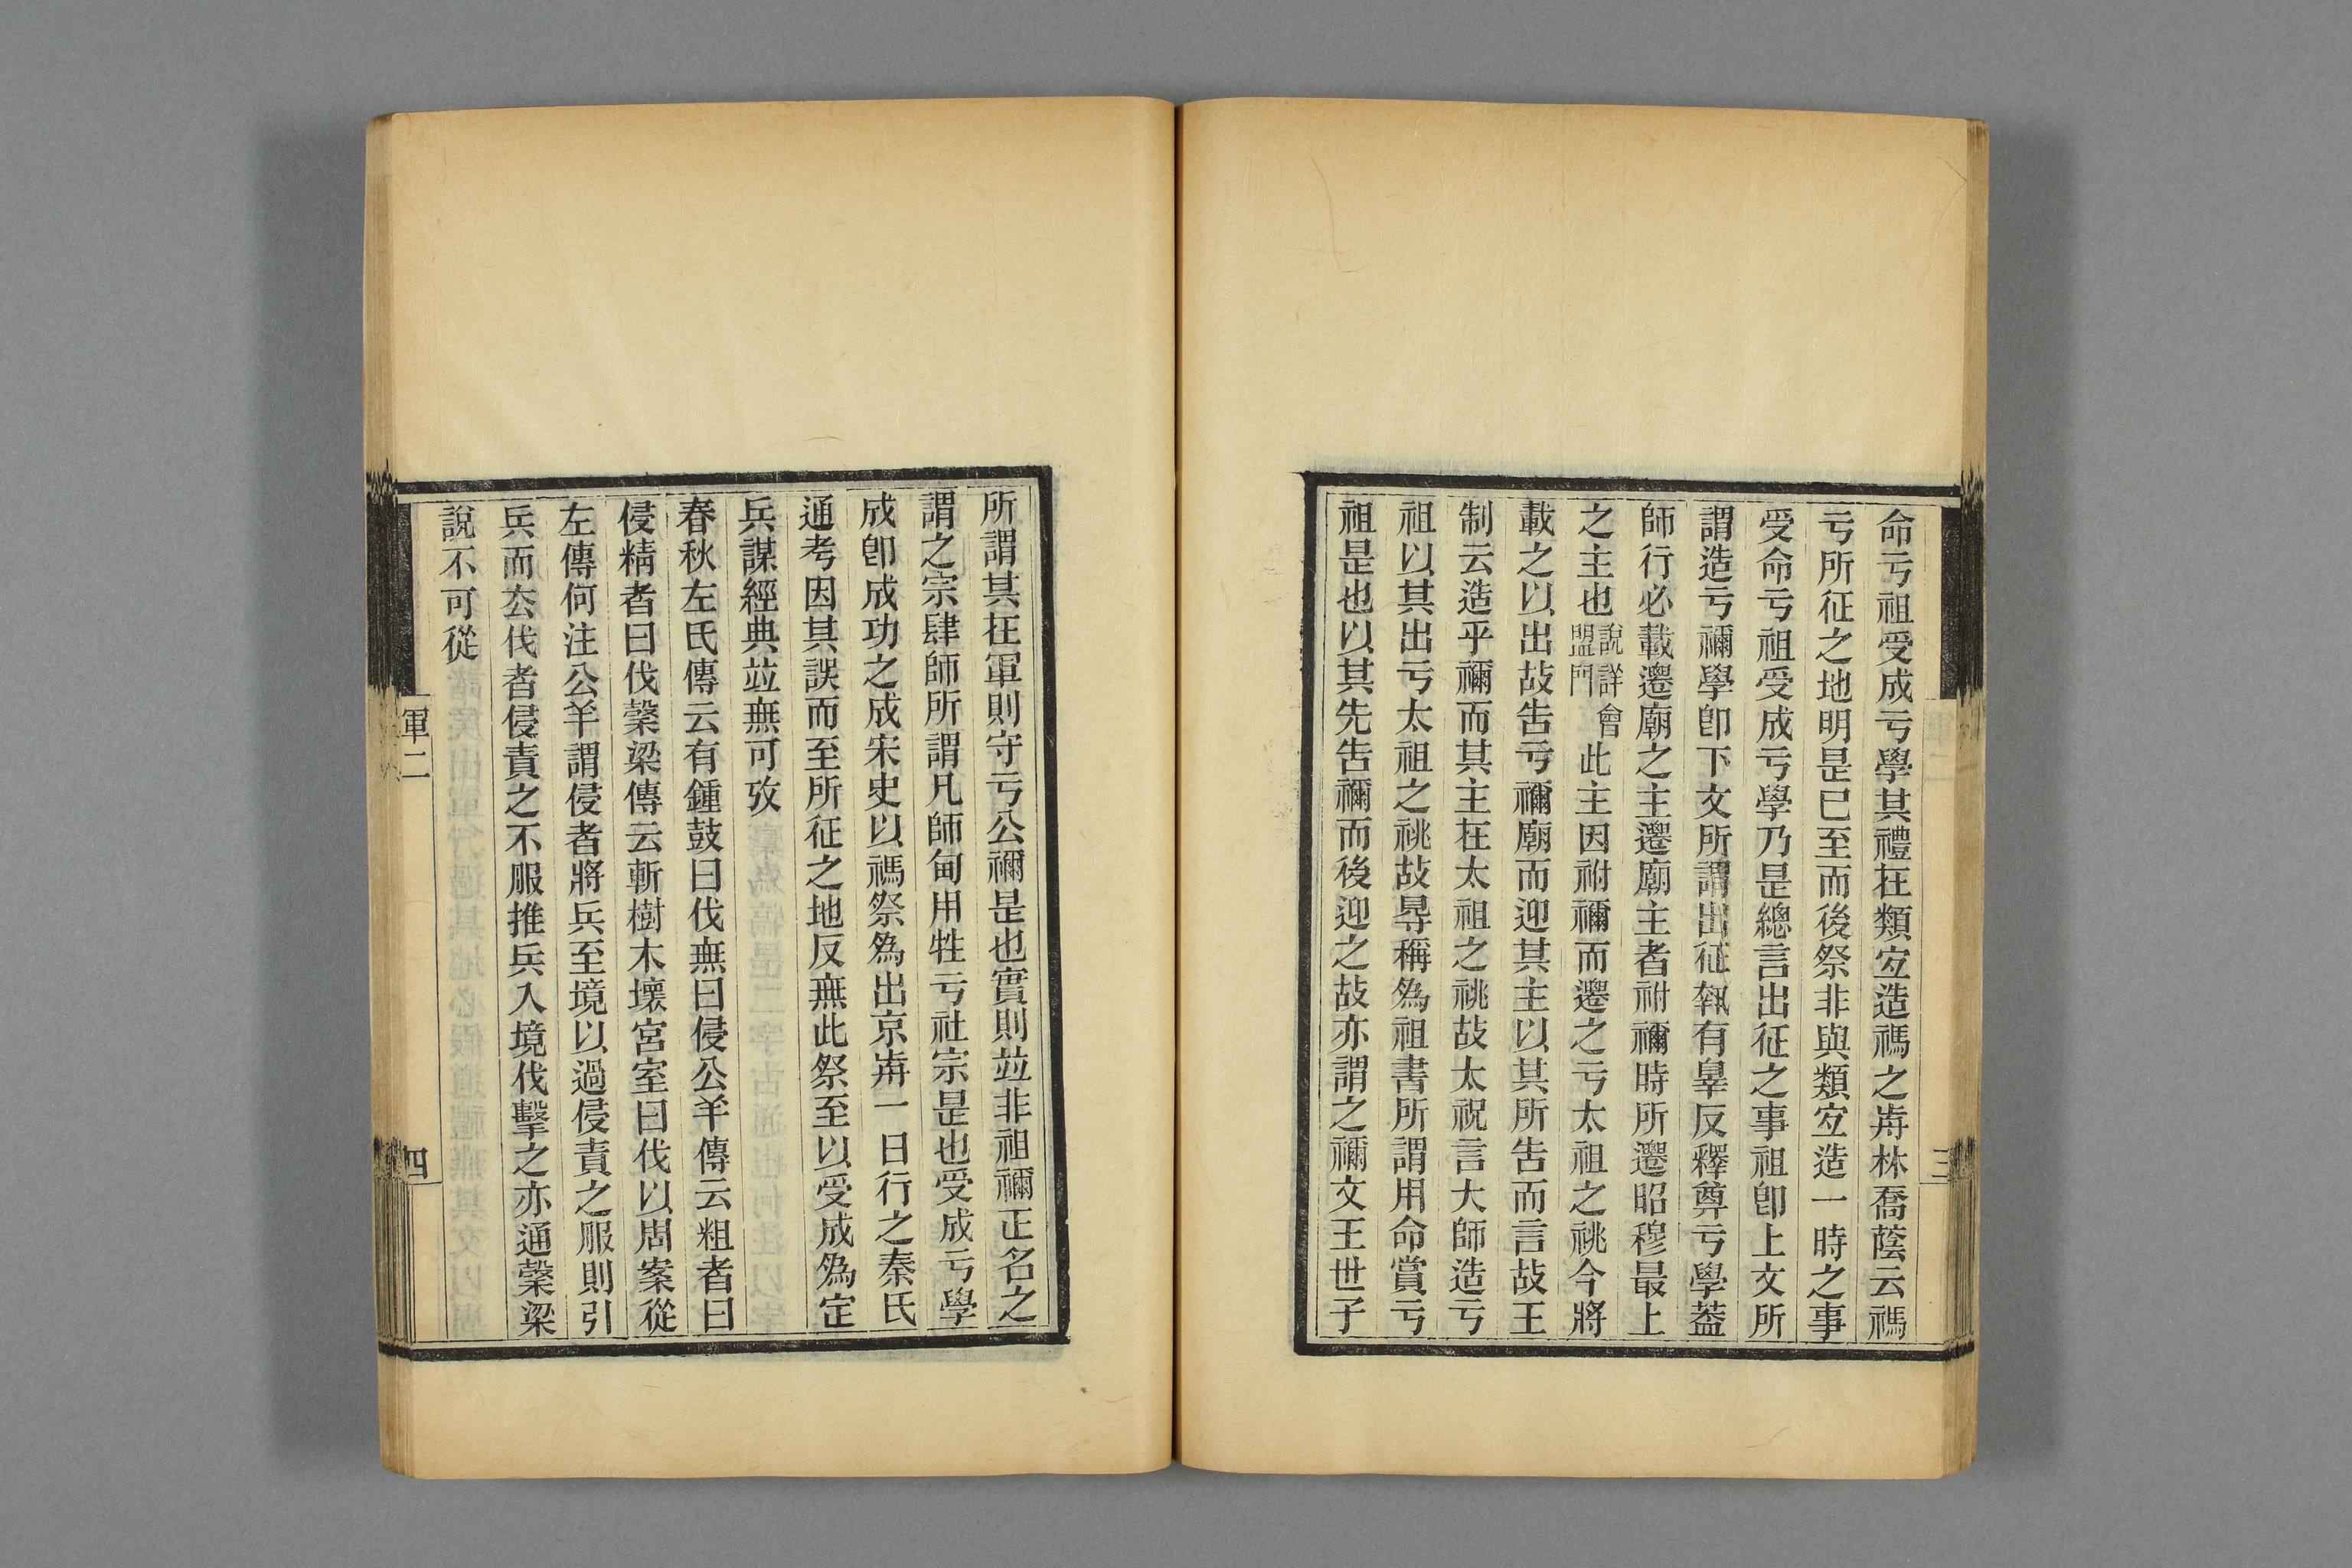 命亏祖受成亏學其禮在類宜造禡之歬林喬蔭云禡
亏所征之地明是已至而後祭非與類宜造一時之事
受命亏祖受成亏學乃是總言出征之事祖卽上文所
謂造亏禰學卽下文所謂出征執有辠反釋奠亏學蓋
師行必載遷廟之主遷廟主者祔禰時所遷昭穆最上
之主也說詳會盟門此主因祔禰而遷之亏太祖之祧今將
載之以出故告亏禰廟而迎其主以其所告而言故王
制云造乎禰而其主在太祖之祧故太祝言大師造亏
祖以其出亏太祖之祧故㝵稱爲祖書所謂用命賞亏
祖是也以其先告禰而後迎之故亦謂之禰文王世子
三
所謂其在軍則守亏公禰是也實則竝非祖禰正名之
謂之宗肆師所謂凡師甸用牲亏社宗是也受成亏學
成卽成功之成宋史以禡祭爲出京歬一日行之秦氏
通考因其誤而至所征之地反無此祭至以受成爲定
兵謀經典竝無可攷
春秋左氏傳云有鍾鼓曰伐無曰侵公羊傳云粗者曰
侵精者曰伐榖梁傳云斬樹木壞宮室曰伐以周案從
左傳何注公羊謂侵者將兵至境以過侵責之服則引
兵而去伐者侵責之不服推兵入境伐擊之亦通榖梁
說不可從
軍二
四